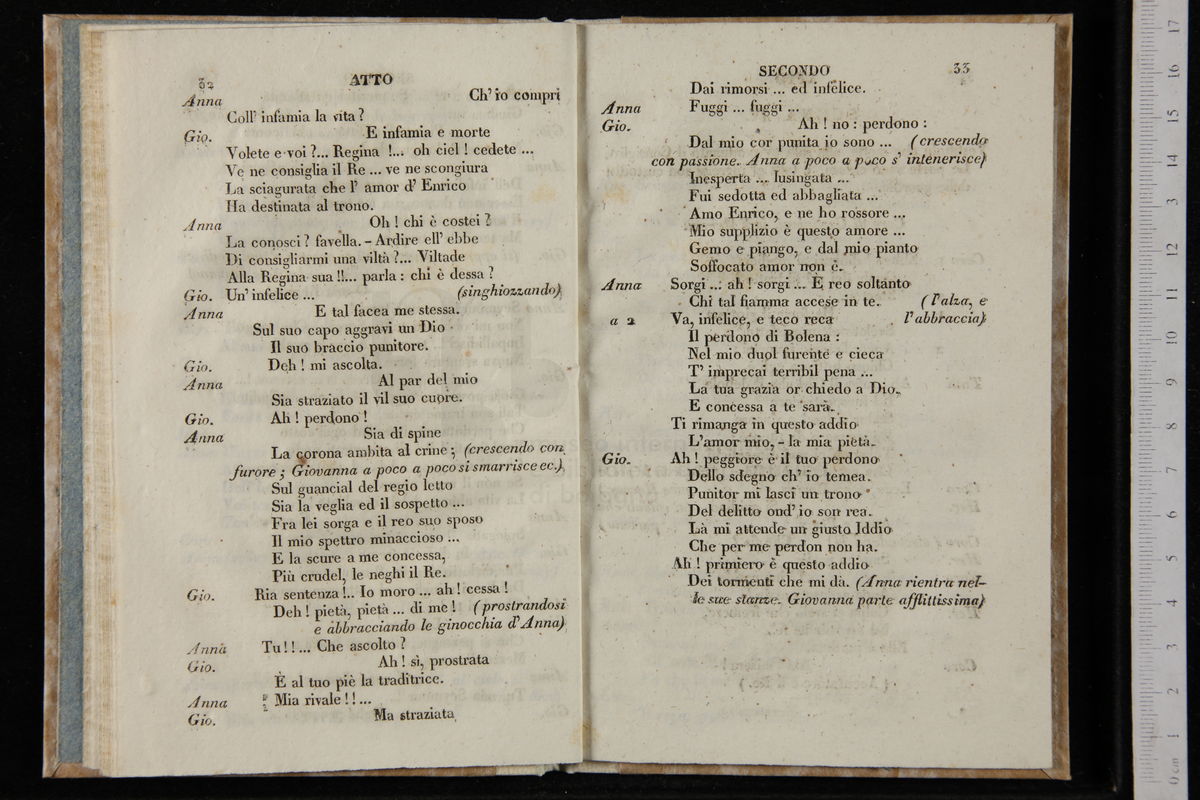 32 ATTO
Anna Ch' io compri
Coll' infamia la vita?
Gio. E infamia e morte
Volete e voi?... Regina!... oh ciel! cedete ...
Ve ne consiglia il Re ... ve ne scongiura
La sciagurata che l' amor d' Enrico
Ha destinata al trono.
Anna Oh! chi è costei?
La conosci? favella. - Ardire ell' ebbe
Di consigliarmi una viltà?... Viltade
Alla Regina sua!!... parla: chi è dessa?
Gio. Un' infelice ... (singhiozzando)
Anna E tal facea me stessa.
Sul suo capo aggravi un Dio
Il suo braccio punitore.
Gio. Deh! mi ascolta.
Anna Al par del mio
Sia straziato il vil suo cuore.
Gio. Ah! perdono!
Anna Sia di spine
La corona ambita al crine; (crescendo con
furore; Giovanna a poco a poco si smarrisce ec.)
Sul guancial del regio letto
Sia la veglia ed il sospetto ...
Fra lei sorga e il reo suo sposo
Il mio spettro minaccioso ...
E la scure a me concessa,
Più crudel, le neghi il Re.
Gio. Ria sentenza!.. Io moro ... ah! cessa!
Deh! pietà, pietà ... di me! (prostrandosi
e abbracciando le ginocchia d' Anna)
Anna Tu!!... Che ascolto?
Gio. Ah! sì, prostrata
È al tuo piè la traditrice.
Anna Mia rivale!!...
Gio. Ma straziata
SECONDO 33
Dai rimorsi ... ed infelice.
Anna Fuggi ... fuggi ...
Gio. Ah! no: perdono:
Dal mio cor punita io sono ... (crescendo
con passione. Anna a poco a poco s' intenerisce)
Inesperta ... lusingata ...
Fui sedotta ed abbagliata ...
Amo Enrico, e ne ho rossore ...
Mio supplizio è questo amore ...
Gemo e piango, e dal mio pianto
Soffocato amor non è.
Anna Sorgi ... ah! sorgi ... E reo soltanto
Chi tal fiamma accese in te. (l' alza, e
a 2 Va, infelice, e teco reca l' abbraccia)
Il perdono di Bolena:
Nel mio duol furente e cieca
T' imprecai terribil pena ...
La tua grazia or chiedo a Dio,
E concessa a te sarà.
Ti rimanga in questo addio
L'amor mio, - la mia pietà.
Gio. Ah! peggiore è il tuo perdono
Dello sdegno ch' io temea.
Punitor mi lasci un trono
Del delitto ond' io son rea.
Là mi attende un giusto Iddio
Che per me perdon non ha.
Ah! primiero è questo addio
Dei tormenti che mi dà. (Anna rientra nel-
le sue stanze. Giovanna parte afflittissima)